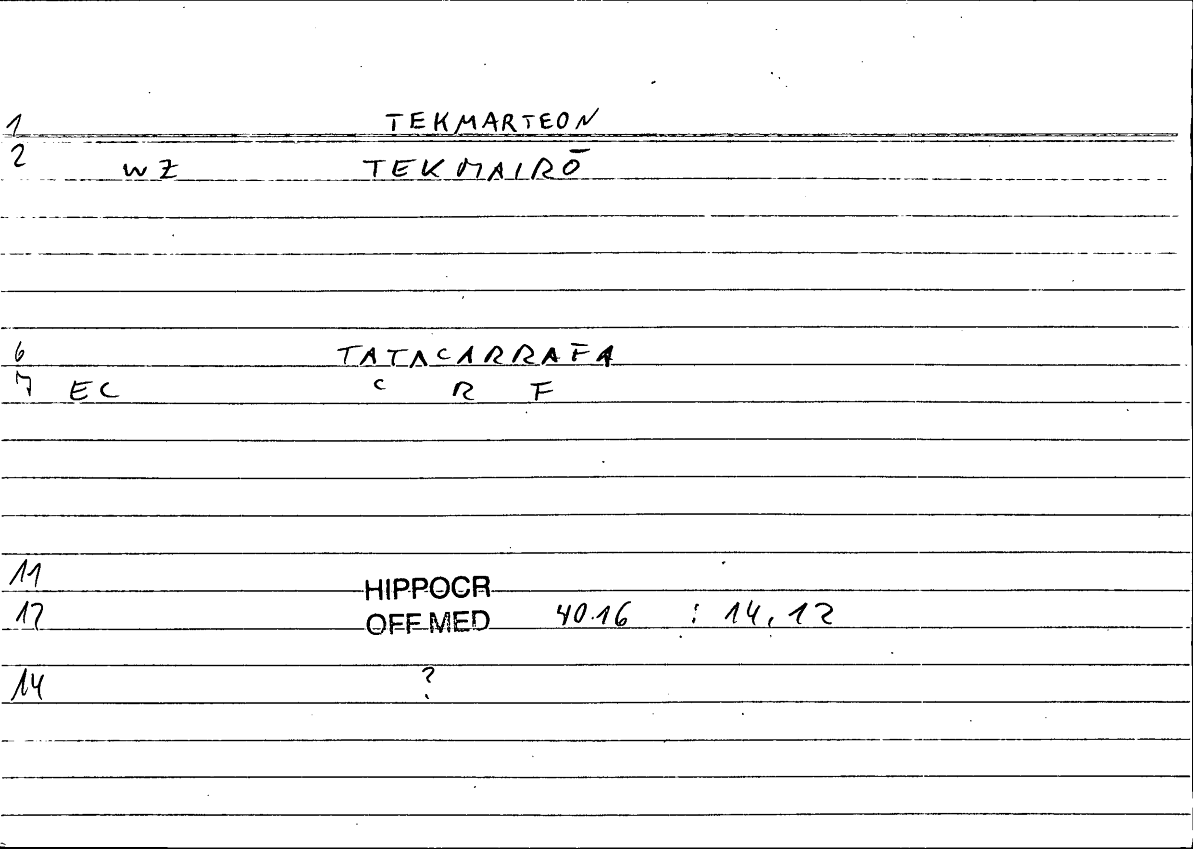 1 TEKMARTEON
2 WZ TEKMAIRŌ
6 TATACARRAFA
7 EC C R F
11 HIPPOCR
12 OFF MED 40.16 : 14,12
14 ?